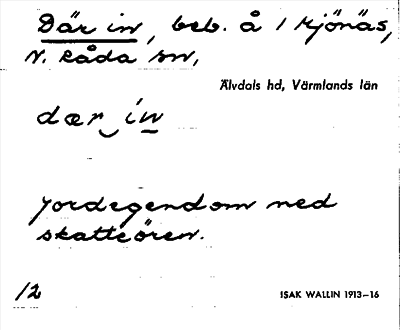 Där in, beb. å 1 Mjönäs,
N. Råda sn,
Älvdals hd, Värmlands län
dær in
jordegendom med
skatteören.
12
ISAK WALLIN 1913–16